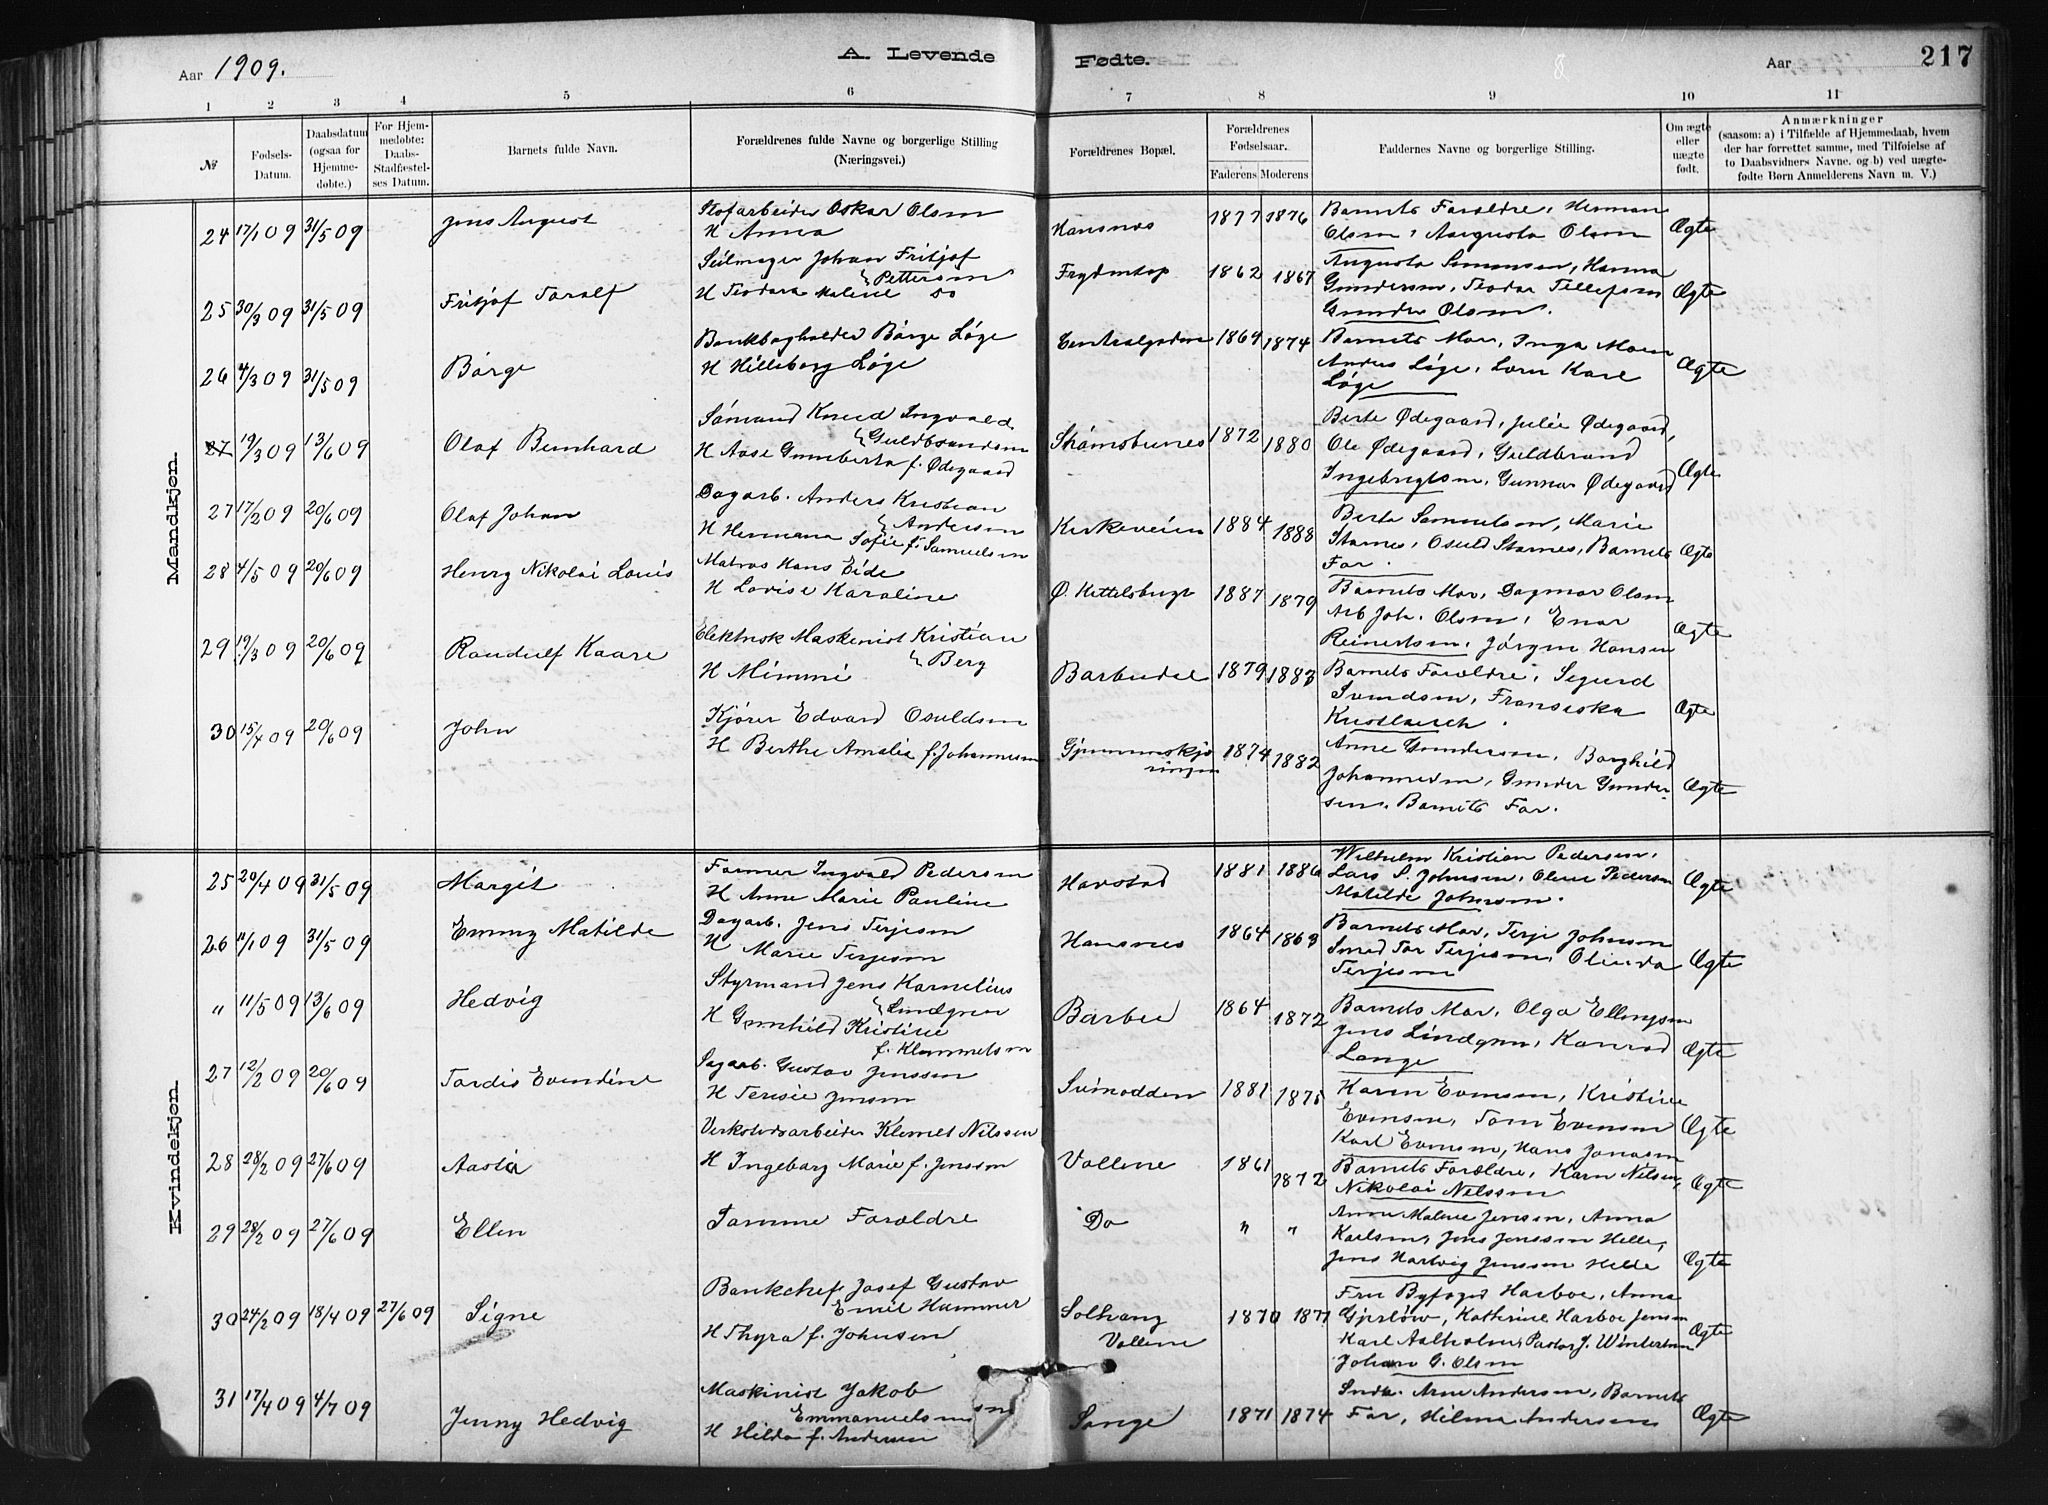 Aar 1909.
A. Levende Fødte.
Aar
217
1 2 3 4 5 6 7 8 9 10 11
№
Fødsels-Datum.
Daabsdatum (ogsaa for Hjemme-døbte.)
For Hjem-medøbte: Daabs-Stadfæstel-ses Datum.
Barnets fulde Navn.
Forældrenes fulde Navne og borgerlige Stilling (Næringsvei.)
Forældrenes Bopæl.
Forældrenes Fødselsaar.
Faderens Moderens
Faddernes Navne og borgerlige Stilling.
Om ægte eller uægte født.
Anmærkninger
(saasom: a) i Tilfælde af Hjemmedaab, hvem
der har forrettet samme, med Tilføielse af
to Daabsvidners Navne. og b) ved uægte-
fødte Børn Anmelderens Navn m. V.)
Mandkjøn.
24 17/1 09 31/5 09 Jens August
Oskar Olsen
H Anna
Hansnes 1877 1876
Barnets Forældre, Herman
Olsen, Augusta Olsen
Ægte
25 30/3 09 31/5 09 Fritjof Toralf
Seilmager Johan Fritjof
Pettersen
H Teodora Malene Do
1862 1867
Augusta Simonsen, Hanna
Gundersen, Teodor Tellefsen
Gunder Olsen.
Ægte
26 4/3 09 31/5 09 Børge
Bankbogholder Børge Løge
H Hilleborg Løge
Centralgaden 1869 1874
Barnets Mor, Inga Moen
Anders Løge, Karl
Løge
Ægte
27 19/3 09 13/6 09 Olaf Bernhard
Sømand Knud Ingvald
Guldbrandsen
H Aase Gunberta f. Ødegaard
1872 1880
Berte Ødegaard, Julie Ødegaard,
Ole Ødegaard, Guldbrand
Ingebrigtsen, Gunnar Ødegaard
Ægte
27 17/2 09 20/6 09 Olaf Johan
Dagarb. Anders Kristian
Andersen
H Hermana Sofie f. Samuelsen
Kirkeveien 1884 1888
Berta Samuelsen, Marie
Stames, Osuld Stames, Barnets
Far.
Ægte
28 4/5 09 20/6 09 Henry Nikolai Louis
Matros Hans Eide
H Lovise Karoline
Ø. Kittelsbugt 1887 1879
Barnets Mor, Dagmar Olsen
Arb Joh. Olsen, Enar
Reinertsen, Jørgen Hansen
Ægte
29 19/3 09 20/6 09 Randulf Kaare
Elektrisk Maskinist Kristian
Berg
H Mimmi
Barbudal 1879 1883
Barnets Forældre, Sigurd
Svendsen, Fransiska
Ægte
30 15/4 09 20/6 09 John
Kjører Edvard Osuldsen
H Berthe Amalie f. Johannesen
1874 1882
Anne Gundersen, Borghild
Johannesen, Gunder Gunder-
sen, Barnets Far.
Ægte
Kvindekjøn.
25 20/4 09 31/5 09 Margit
Former Ingvald Pedersen
H Anne Marie Pauline
Havstad 1881 1886
Wilhelm Kristian Pedersen,
Lars S. Johnsen, Oline Pedersen
Matilde Johnsen.
Ægte
26 11/1 09 31/5 09 Emmy Matilde
Dagarb. Jens Terjesen
H Marie Terjesen
Hansnes 1864 1863
Barnets Mor, Terje Johnsen
Smed Tor Terjesen, Olinda
Terjesen
Ægte
" 11/5 09 13/6 09 Hedvig
Styrmand Jens Kornelius
Lindgren
H Gunhild Kristine
f. Klemmetsen
Barbu 1864 1872
Barnets Mor, Olga Ellingsen
Jens Lindgren, Konrad
Lange
Ægte
27 12/2 09 20/6 09 Tordis Evendine
Sagarb. Gustav Jenssen
H Terisie Jensen
Svinodden 1881 1875
Karen Evensen, Kristine
Evensen, Tom Evensen
Karl Evensen, Hans Jonasen
Ægte
28 28/2 09 27/6 09 Aasta
Verkstedsarbeider Klemet Nilssen
H Ingeborg Marie f. Jenssen
Vollene 1861 1872
Barnets Forældre, Karen Nilsen,
Nikolai Nilssen
Ægte
29 28/2 09 27/6 09 Ellen
Samme Forældre
Do " "
Anne Malene Jensen, Anna
Karlsen, Jens Jenssen Helle,
Jens Hartvig Jenssen Helde
Ægte
30 24/2 09 18/4 09 27/6 09 Signe
Bankchef Josef Gustav
Emil Hammer
H Thyra f. Johnsen
Solhaug
Vollene
1870 1871
Fru Byfoged Harboe, Anna
Gjerløw, Kathrine Harboe Jensen
Karl Aalholm, Pastor J. Wintertun
Johan G. Olsen
Ægte
31 17/4 09 4/7 09 Jenny Hedvig
Maskinist Jakob
Emmanuelsen
H Hilda f. Andersen
Songe 1871 1874
Arne Andersen, Barnets
Far, Hilma Andersen
Ægte